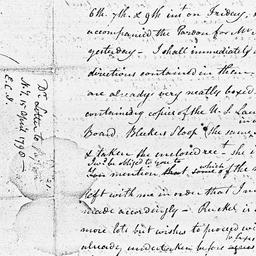 6th. 7th. & 9th inst on Friday,
accompanied the Pardon for Mr
yesterday - I shall immediately
directions contained in them,
are already very neatly boxed
containing copies of the U.S. Law
board Bleekers Sloop the same
& taken the enclosed rect - she
I will be obliged to you to
mention that some of the
which
left with me in order that I
made accordingly - Ruckel is
more lots but wishes to proceed wi
already undertaken before agrees
Dr Letter to
N.Y. 15 April 1790